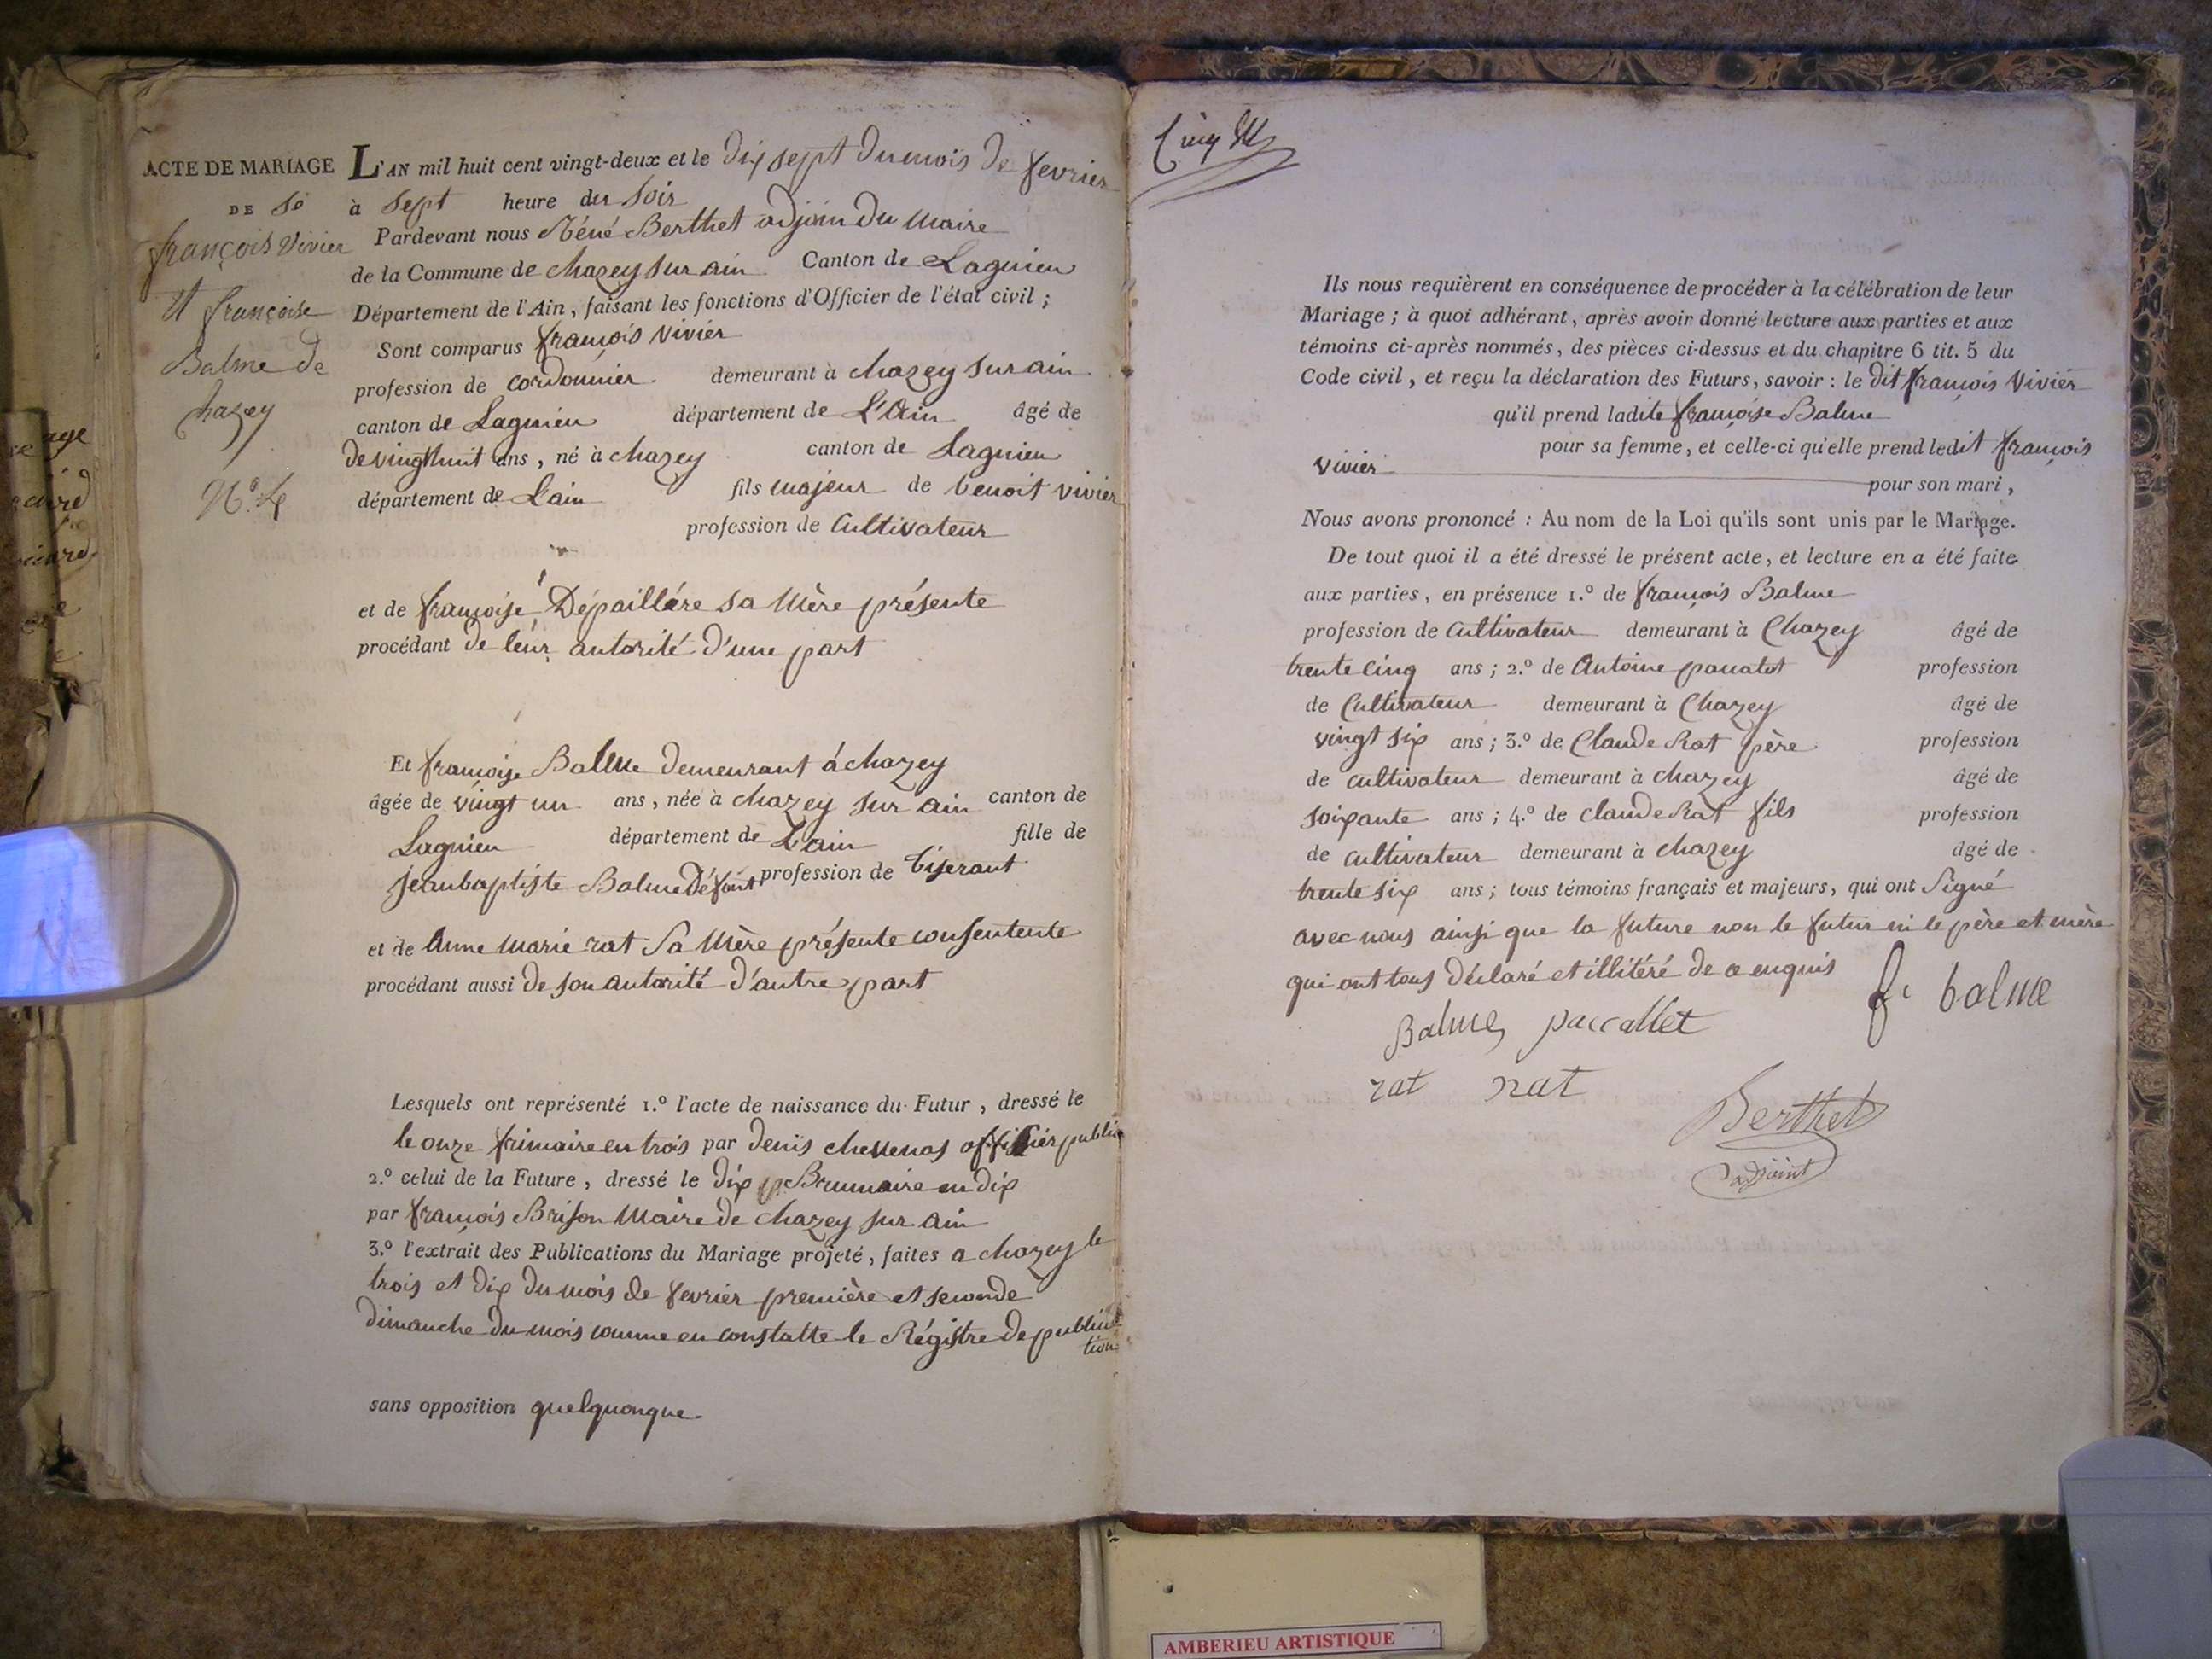 ACTE DE MARIAGE
DE Sè
françois Vivier
Et françoise
Balme de
chazey
N.º 4
L'AN mil huit cent vingt-deux et le dix sept du mois de fevrier
à sept heure du soir
Pardevant nous Réné Berthet adjoin du maire
de la Commune de chazey sur ain Canton de Lagnieu
Département de l'Ain, faisant les fonctions d'Officier de l'état civil ;
Sont comparus françois vivier
profession de cordonnier demeurant à chazey sur ain
canton de Lagnieu département de L'Ain âgé de
de vingt huit ans, né à chazey canton de Lagnieu
département de Lain fils majeur de benoit vivier
profession de Cultivateur
et de françoise Dépaillére sa Mère présente
procédant de leur autorité d'une part
Et françoise Balme demeurant à chazey
âgée de vingt un ans, née à chazey sur ain canton de
Lagnieu département de Lain fille de
jeanbaptiste Balme Défont profession de tiserant
et de Anne Marie rat Sa Mère présente consentente
procédant aussi de son autorité d'autre part
Lesquels ont représenté 1.º l'acte de naissance du Futur, dressé le
le onze frimaire en trois par denis chevenas officier public
2.º celui de la Future, dressé le dix Brumaire en dix
par françois Brison Maire de chazey sur ain
3.º l'extrait des Publications du Mariage projeté, faites a chazey le
trois et dix du mois de fevrier première et seconde
dimanche du mois comme en constatte le Régistre de publica
tion
sans opposition quelquonque.
Cinq
Ils nous requièrent en conséquence de procéder à la célébration de leur
Mariage ; à quoi adhérant, après avoir donné lecture aux parties et aux
témoins ci-après nommés, des pièces ci-dessus et du chapitre 6 tit. 5 du
Code civil, et reçu la déclaration des Futurs, savoir : le dit françois Vivier
qu'il prend ladite françoise Balme
pour sa femme, et celle-ci qu'elle prend ledit françois
vivier pour son mari,
Nous avons prononcé : Au nom de la Loi qu'ils sont unis par le Mariage.
De tout quoi il a été dressé le présent acte, et lecture en a été faite
aux parties, en présence 1.º de françois Balme
profession de Cultivateur demeurant à Chazey âgé de
trente cinq ans ; 2.º de Antoine paccalet profession
de Cultivateur demeurant à Chazey âgé de
vingt six ans ; 3.º de Claude Rat père profession
de cultivateur demeurant à chazey âgé de
soixante ans ; 4.º de claude Rat fils profession
de cultivateur demeurant à chazey âgé de
trente six ans ; tous témoins français et majeurs, qui ont Signé
avec nous ainsi que la future non le futur ni le père et mère
qui ont tous déclaré et illitéré de ce enquis
f. balme
Balme paccallet
rat rat
Berthet
adjoint
AMBERIEU ARTISTIQUE